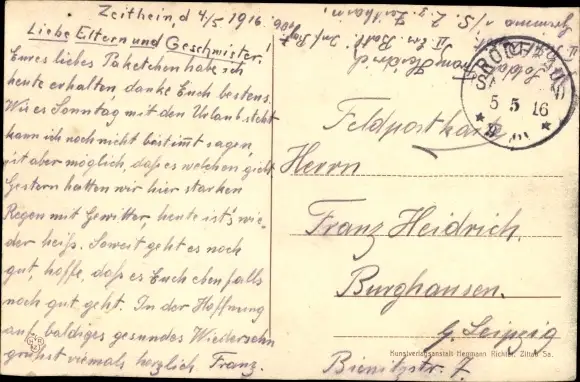 Zeithein, d 4/5 1916.
Liebe Eltern und Geschwister!
Eures liebes Paketchen habe ich
heute erhalten danke Euch bestens.
Wie es Sonntag mit den Urlaub steht
kann ich noch nicht bestimmt sagen,
ist aber möglich, daß es welchen giebt
Gestern hatten wir hier starken
Regen mit Gewitter, heute ist's wie-
der heiß. Soweit geht es noch
gut, hoffe, daß es Euch ebenfalls
noch gut geht. In der Hoffnung
auf baldiges gesundes Wiedersehn
grüßt viemals herzlich Franz.
Heidrich
II Ers. Batl. Inf. Reg. 106.
5 5 16
Feldpostkarte
Herrn
Franz Heidrich.
Burghausen.
b. Leipzig
Bienitzstr. 7
Kunstverlagsanstalt Hermann Richter, Zittau Sa.